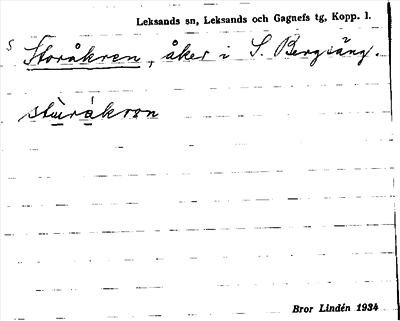 Leksands sn, Leksands och Gagnefs tg, Kopp. l.
S
Storåkren, åker i S. Bergsäng.
stùråkrən
Bror Lindén 1934